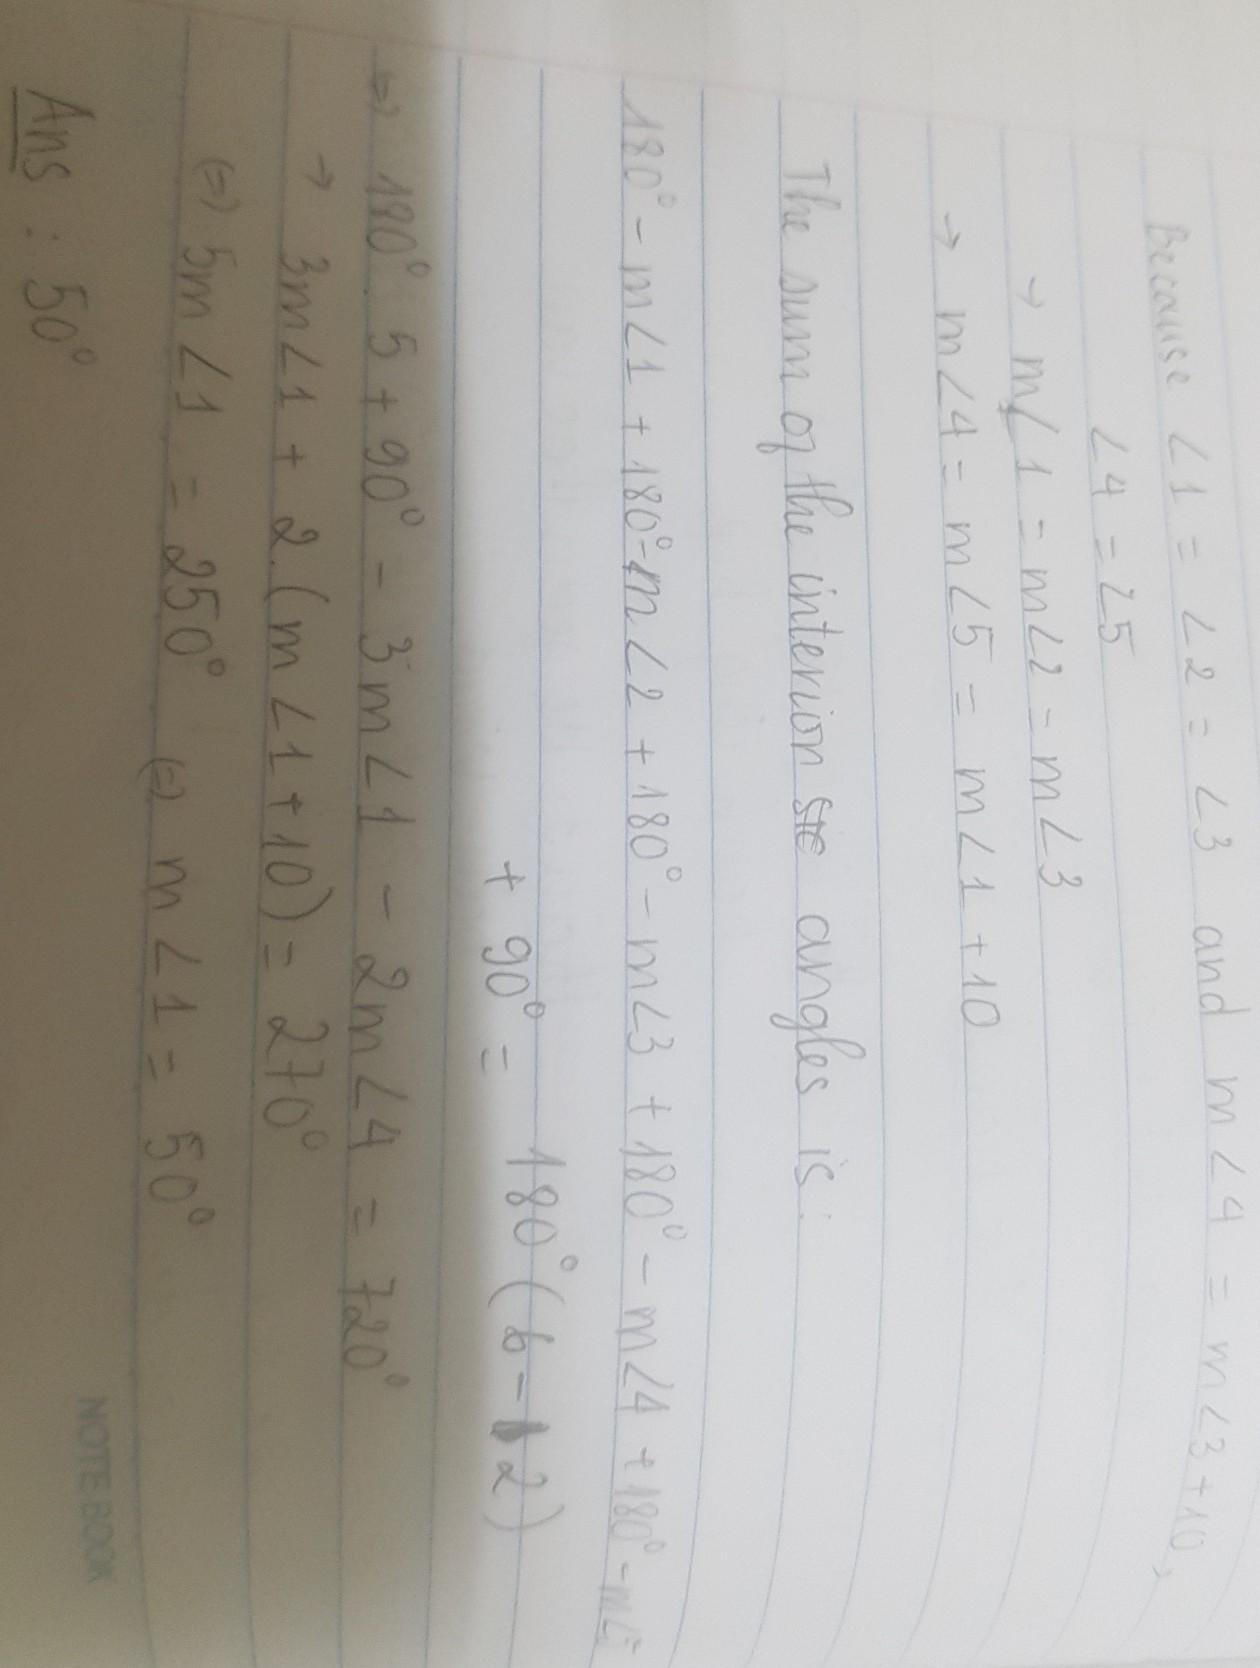 Because ∠1 = ∠2 = ∠3 and m∠4 = m∠3 + 10,
∠4 = ∠5
→ m∠1 = m∠2 = m∠3
→ m∠4 = m∠5 = m∠1 + 10
The sum of the interior angles is:
180° - m∠1 + 180° - m∠2 + 180° - m∠3 + 180° - m∠4 + 180° - m∠5
+ 90° = 180° (6 - 2)
=> 180° 5 + 90° - 3m∠1 - 2m∠4 = 720°
→ 3m∠1 + 2.(m∠1+10) = 270°
(=) 5m∠1 = 250° (=) m∠1 = 50°
Ans : 50°
NOTEBOOK